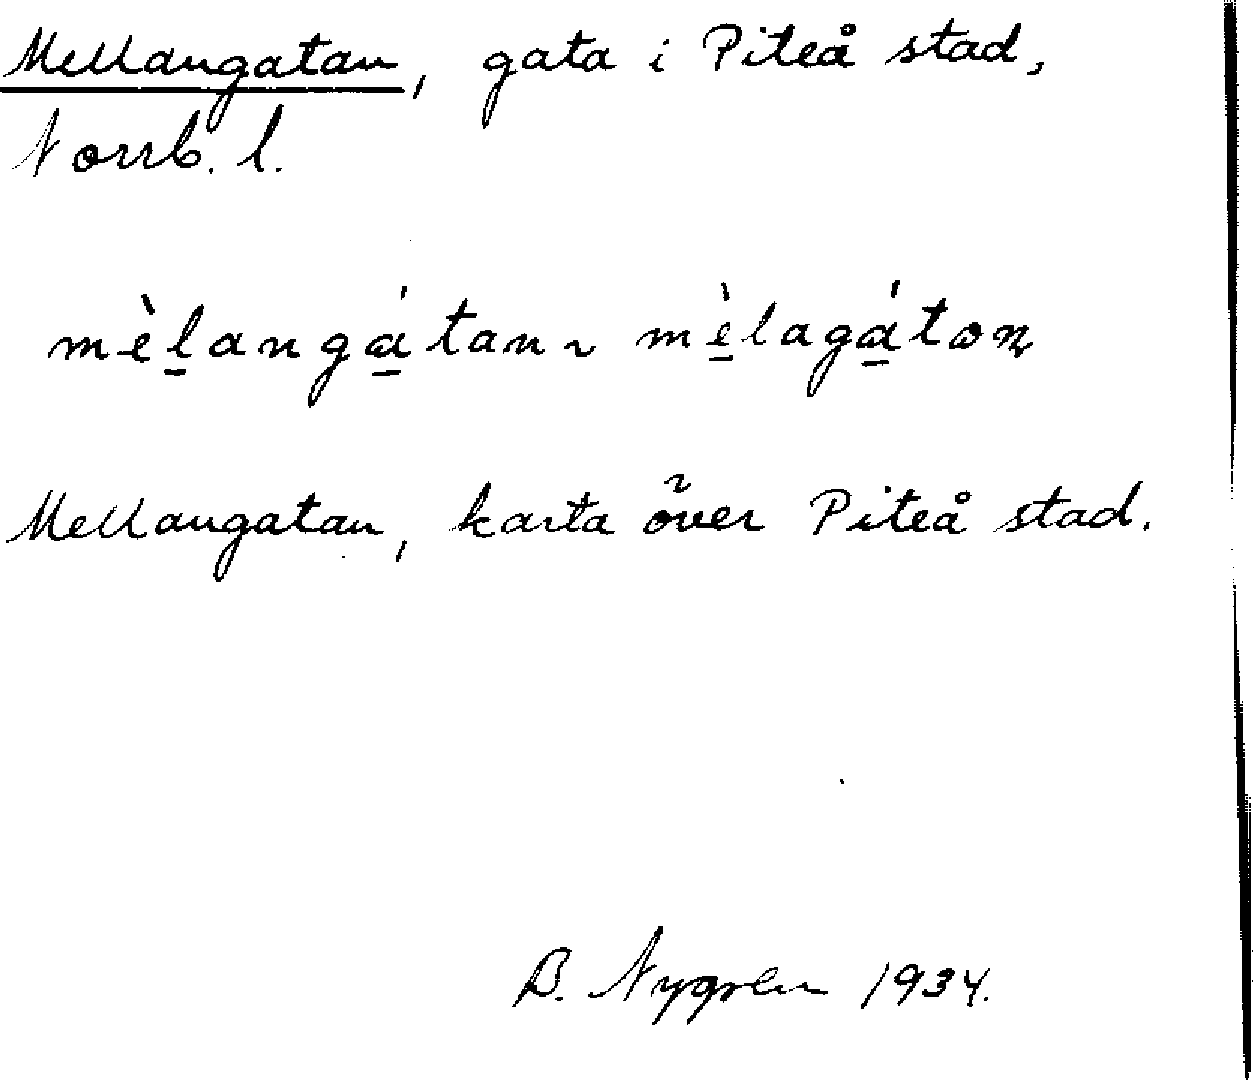 Mellangatan, gata i Piteå stad,
Norrb. l.
mèl̲angá̲tan ~ mè̲lagá̲tən
Mellangatan, karta över Piteå stad.
B. Nygren 1934.